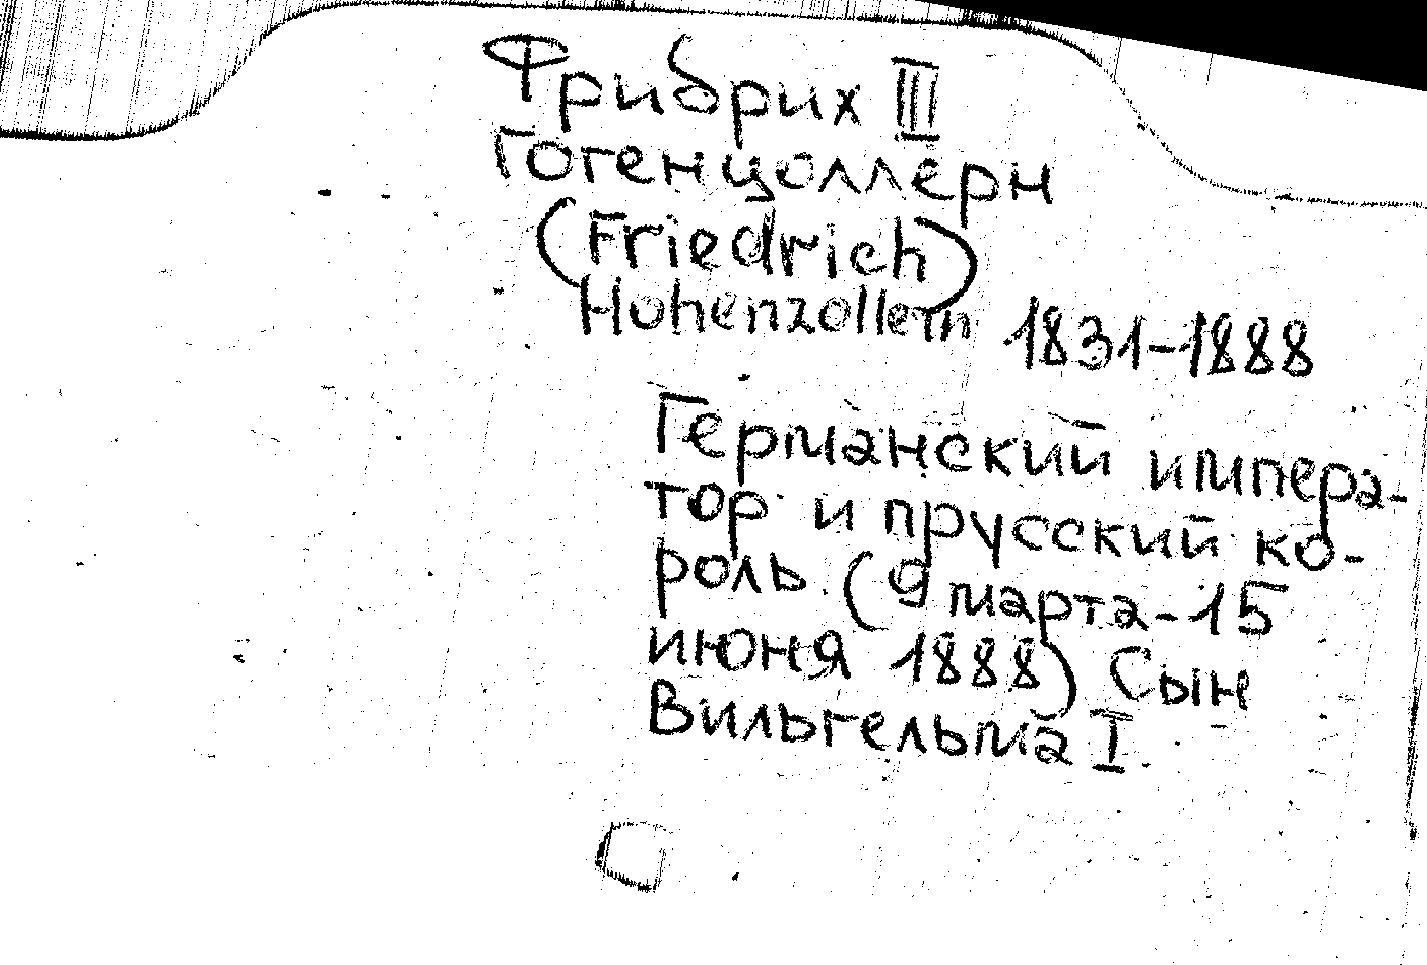 Фрибрих III
Гогенцоллерн
(Friedrich)
Hohenzollern 1831-1888
Германский импера-
тор и прусский ко-
роль (9 марта-15
июня 1888) Сын
Вильгельма I